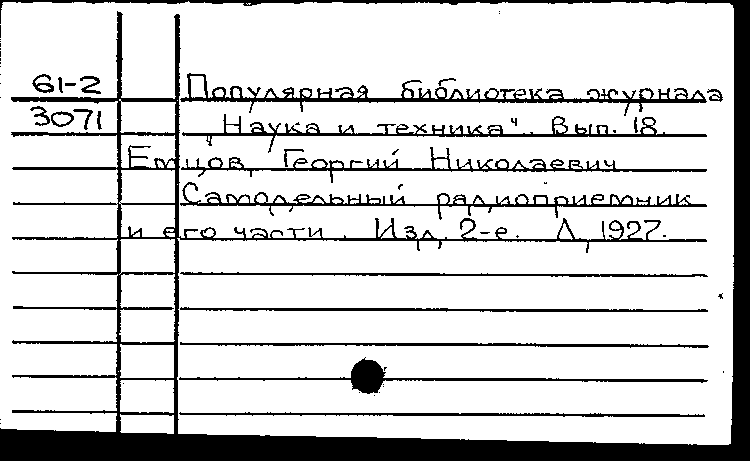 61-2 Популярная библиотека журнала
3071 „Наука и техника“. Вып. 18.
Емцов, Георгий Николаевич
Самодельный радиоприемник
и его части. Изд. 2-е. Л, 1927.